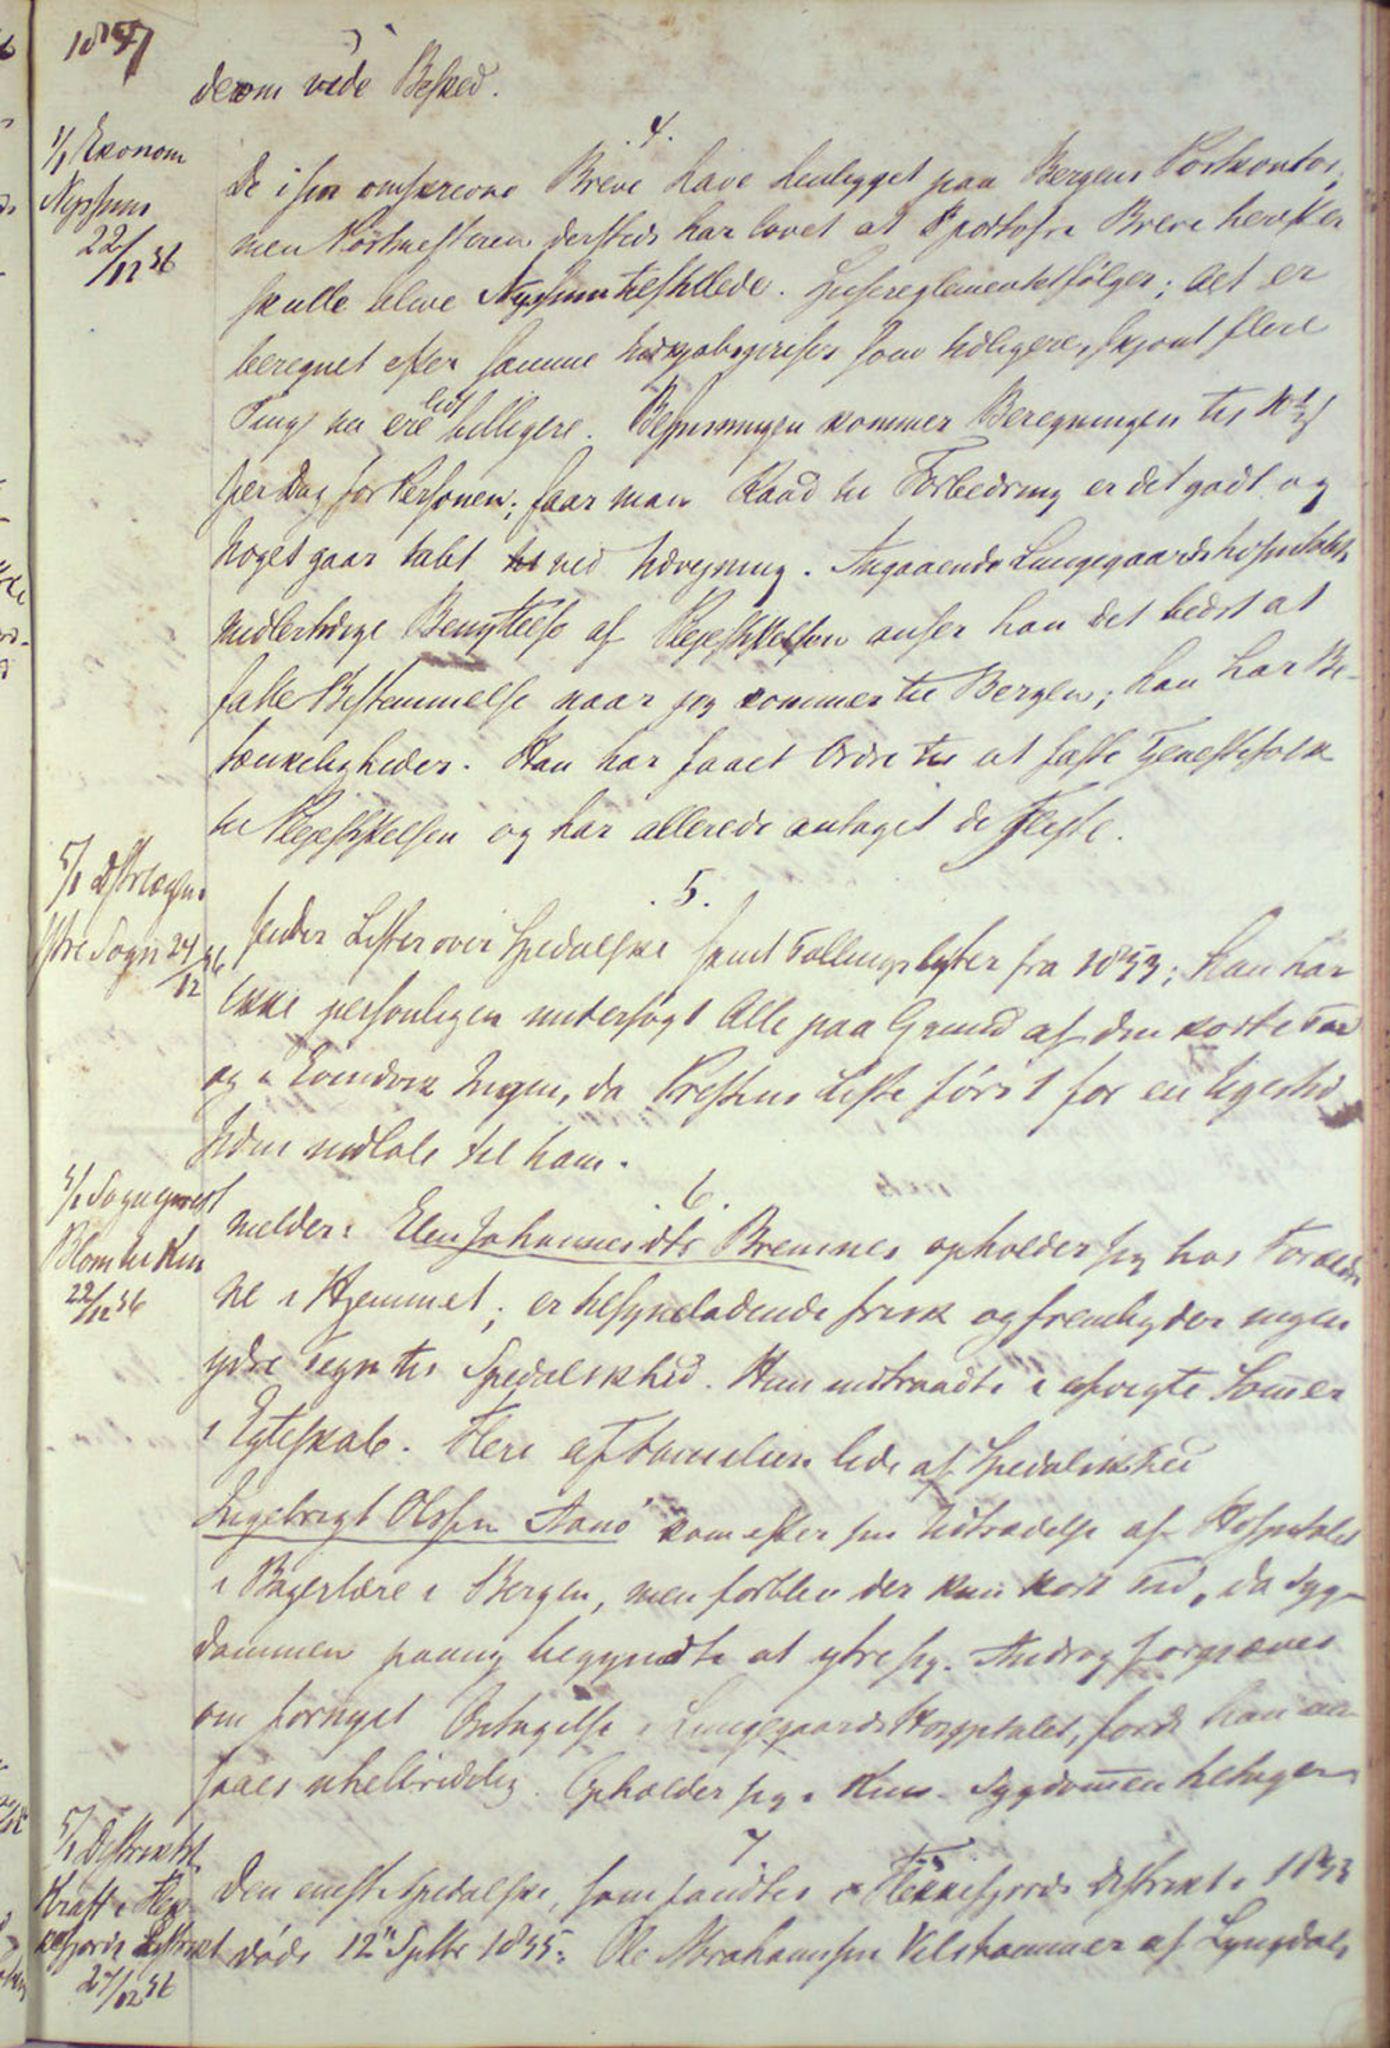 1857
derom vide Besked.
4.
1/1 Økonom
Nyssum
22/12 56
De i sin omskrevne Breve have henligget paa Bergens Postkontor,
men Postmesteren dersteds har lovet at portofri Breve herefter
skulle blive Nyssum tilstillede. Spisereglementet følger; det er
beregnet efter samme Indkjøbspriser som tidligere, skjønt flere
Ting nu ere lidt billigere. Bespisningen kommer Beregningen til
per Dag for Personen; faar man Raad til Forbedring er det godt og
noget gaar tabt ved Udvejning. Angaaende Lungegaardshospitalets
midlertidige Benyttelse af Plejestiftelsen anser han det bedst at
fatte Bestemmelse naar jeg kommer til Bergen; han har Be-
tænkeligheder. Han har faaet Ordre til at fæste Tjenestefolk
til Plejestiftelsen og har allerede antaget de Fleste.
5.
5/1 Distrlægen i
Ytre Sogn 24/12 56
sender Lister over Spedalske samt Tællingslister fra 1853; han har
ikke personligen undersøgt Alle paa Grund af den korte Tid
og i Evindvik Ingen, da Prestens Liste først for en Uges Tid
siden indløb til ham.
6.
5/1 Sogneprest
Blom til Kin
22/12 56
melder: Elen Johannesdtr Bremnes opholder sig hos Foræld
ne i Hjemmet; er tilsyneladende frisk og frembyder ingen
ydre Tegn til Spedalskhed. Hun indtraadte i afvigte Sommer
i Egteskab. Flere af Familien lide af Spedalskhed
Ingebrigt Olssen Aanø kom efter sin Udtrædelse af Hospitalet
i Bagerlære i Bergen, men forblev der kun kort Tid, da Syg-
dommen paany begyndte at ytre sig. Androg forgjæves
om fornyet Optagelse i Lungegaards Hospitalet, fordi han an
saaes uhelbredelig. Opholder sig i Kinn. Sygdommen tiltager
7
5/1 Distriktsl.
Krafft i Flek-
kefjords Distrikt
27/12 56
Den eneste Spedalske, som fandtes i Flekkefjords Distrikt i 1853
døde 12te Septbr 1855: Ole Abrahamsen Velstammer af Lyngdals